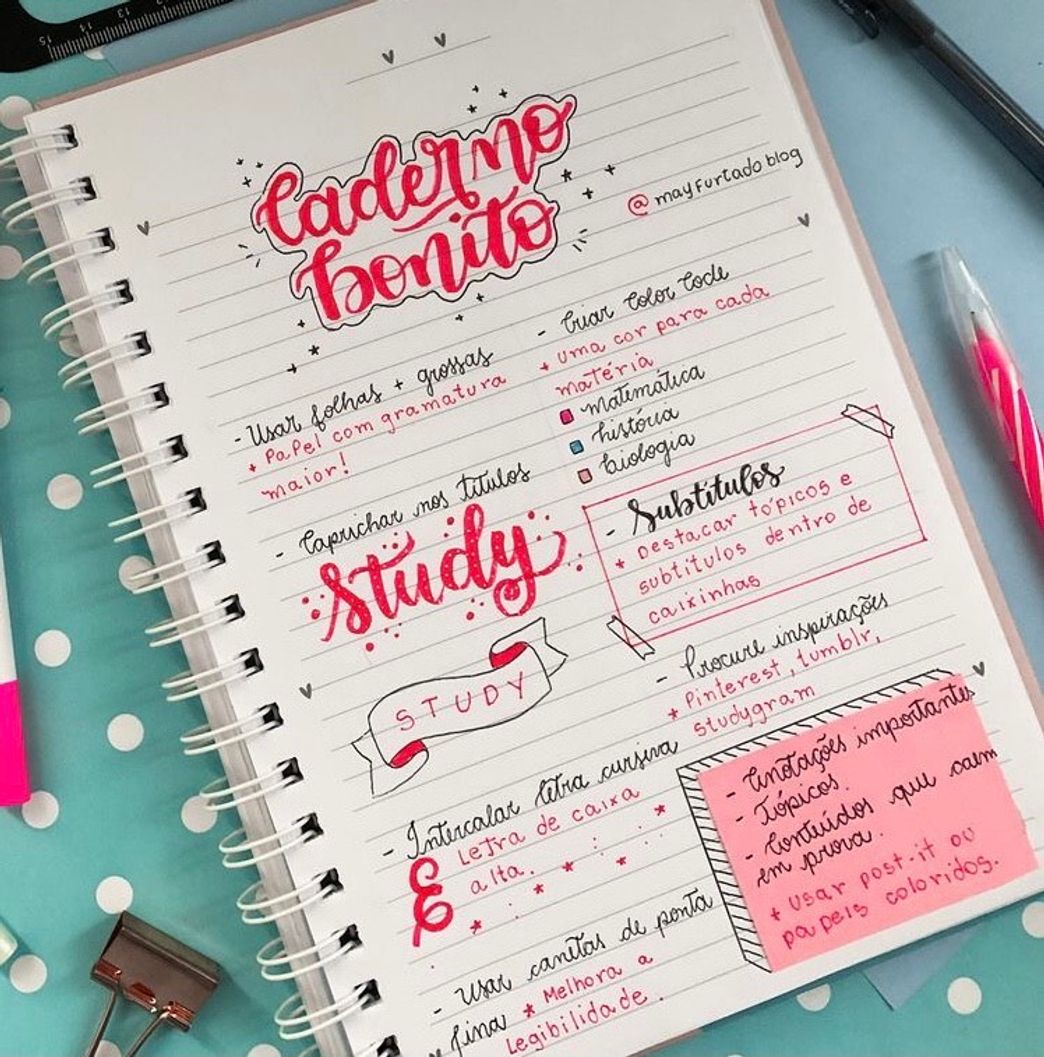 Caderno
bonito
@mayfurtadoblog
- Usar folhas + grossas
+ Papel com gramatura
maior!
- Caprichar nos títulos
Study
STUDY
- Intercalar letra cursiva
E Letra de caixa
alta.
- Usar canetas de ponta
fina * Melhora a
Legibilidade.
- Criar Color Code
+ uma cor para cada
matéria
matemática
história
biologia
- Subtítulos
* Destacar tópicos e
subtítulos dentro de
caixinhas
- Procure inspirações
* Pinterest, tumblr,
studygram
- Anotações importantes
- Tópicos.
- Conteúdos que caem
em prova.
+ usar post-it ou
papeis coloridos.
15 14 13 12